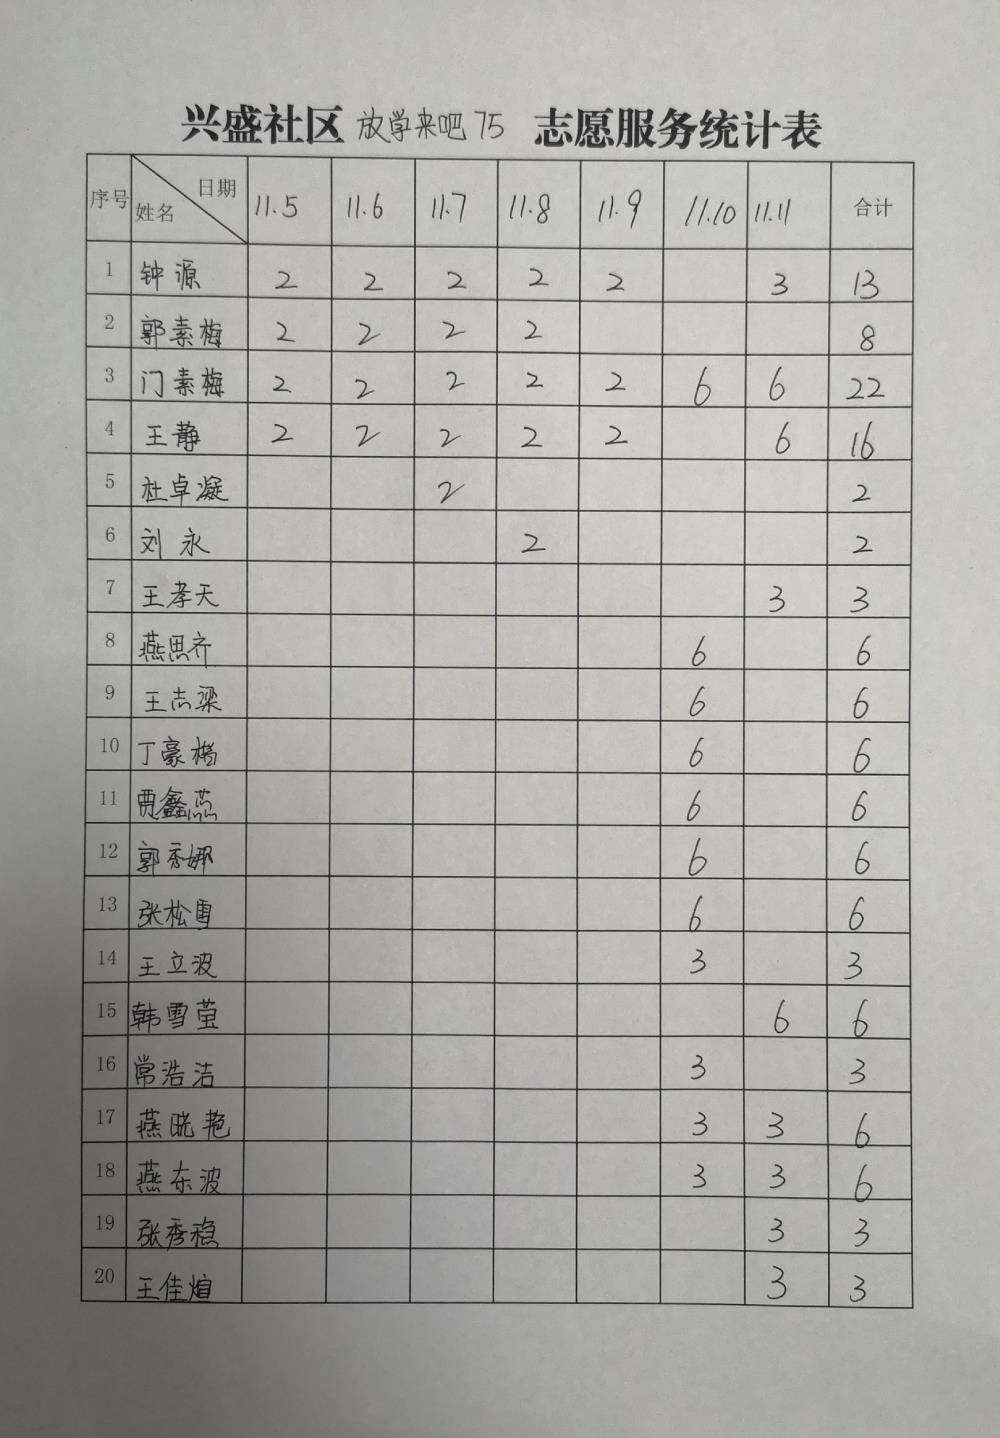 兴盛社区 放学来吧75 志愿服务统计表
序号 日期 姓名 11.5 11.6 11.7 11.8 11.9 11.10 11.11 合计
1 钟源 2 2 2 2 2 3 13
2 郭素梅 2 2 2 2 8
3 门素梅 2 2 2 2 2 6 6 22
4 王静 2 2 2 2 2 6 16
5 杜卓凝 2 2
6 刘永 2 2
7 王孝天 3 3
8 燕思齐 6 6
9 王志梁 6 6
10 丁豪 6 6
11 贾鑫燕 6 6
12 郭秀娜 6 6
13 张松雪 6 6
14 王立波 3 3
15 韩雪莹 6 6
16 常浩洁 3 3
17 燕晓艳 3 3 6
18 燕东波 3 3 6
19 张秀稳 3 3
20 王佳煊 3 3